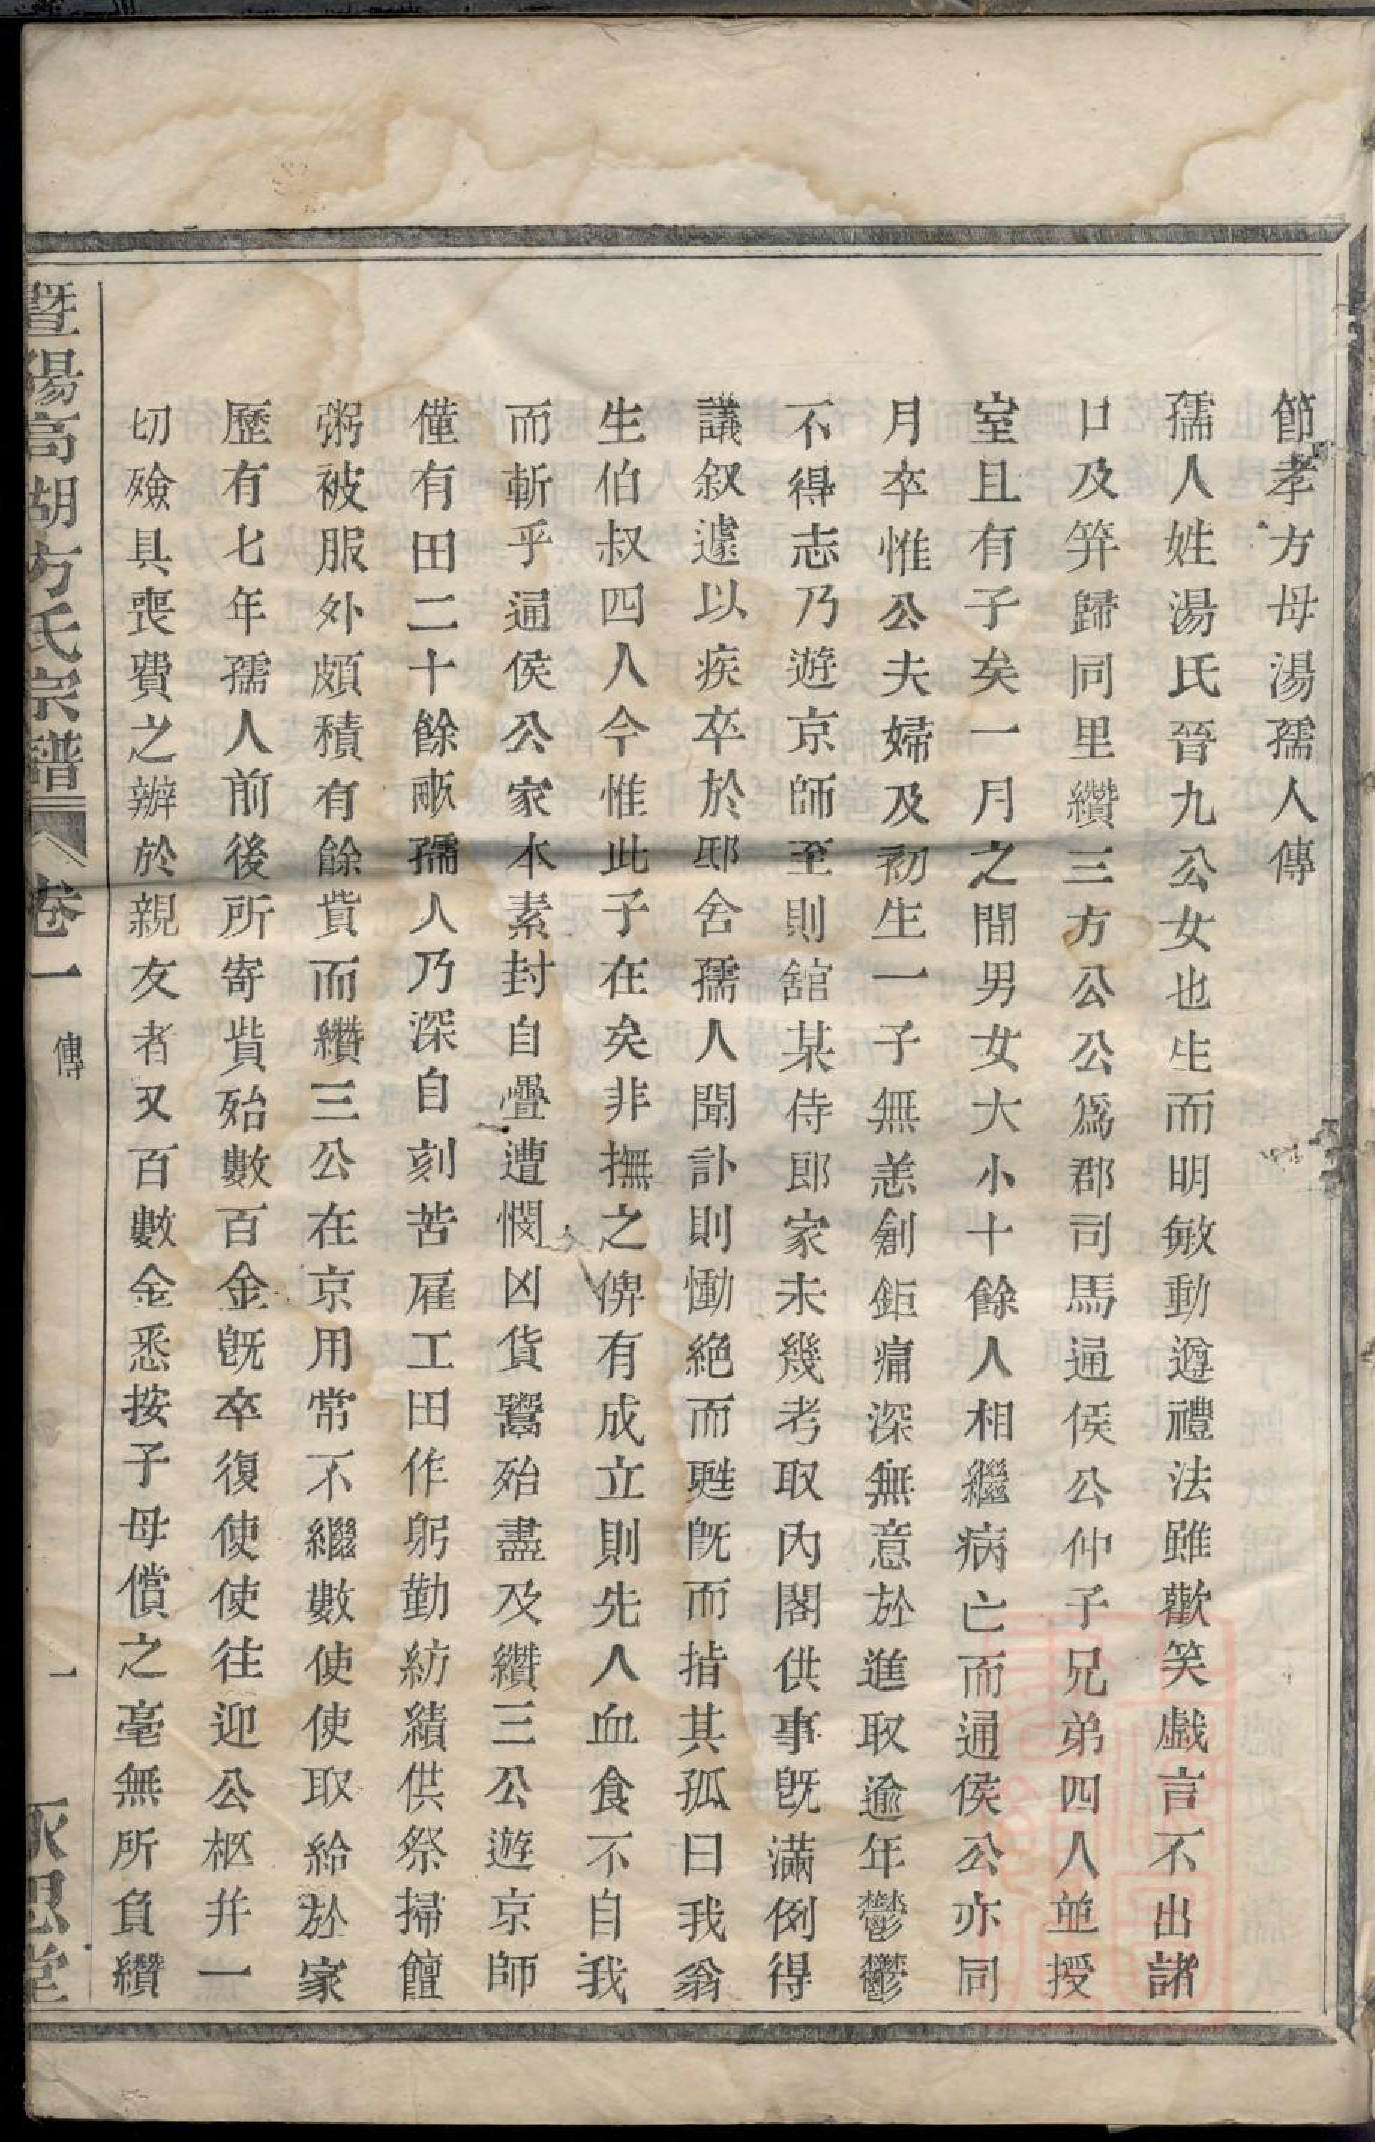 節孝方母湯孺人傳
孺人姓湯氏晉九公女也生而明敏動遵禮法雖歡笑戲言不出諸
口及笄歸同里纘三方公公爲郡司馬通侯公仲子兄弟四人並授
室且有子矣一月之間男女大小十餘人相繼病亡而通侯公亦同
月卒惟公夫婦及初生一子無恙創鉅痛深無意於進取逾年鬱鬱
不得志乃遊京師至則舘某侍郎家未幾考取內閣供事旣滿例得
議叙遽以疾卒於邸舍孺人聞訃則慟絶而甦旣而指其孤曰我翁
生伯叔四人今惟此子在矣非撫之俾有成立則先人血食不自我
而斬乎通侯公家本素封自疊遭憫凶貨鬻殆盡及纘三公遊京師
僅有田二十餘畝孺人乃深自刻苦雇工田作躬勤紡績供祭掃饘
粥被服外頗積有餘貲而纘三公在京用常不繼數使使取給於家
歷有七年孺人前後所寄貲殆數百金旣卒復使使往迎公柩并一
切殮具喪費之辦於親友者又百數金悉按子母償之毫無所負纘
暨陽高湖方氏宗譜 卷一 傳 一 永思堂